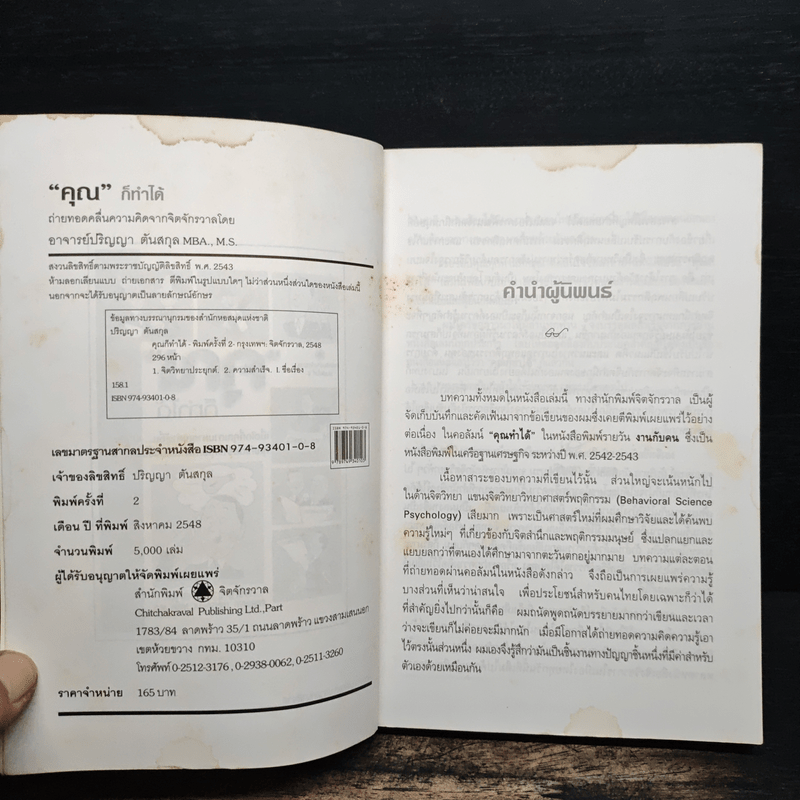 “คุณ” ก็ทำได้
ถ่ายทอดคลื่นความคิดจากจิตจักรวาลโดย
อาจารย์ปริญญา ตันสกุล MBA., M.S.
สงวนลิขสิทธิ์ตามพระราชบัญญัติลิขสิทธิ์ พ.ศ. 2543
ห้ามลอกเลียนแบบ ถ่ายเอกสาร ตีพิมพ์ในรูปแบบใดๆ ไม่ว่าส่วนหนึ่งส่วนใดของหนังสือเล่มนี้
นอกจากจะได้รับอนุญาตเป็นลายลักษณ์อักษร
ข้อมูลทางบรรณานุกรมของสำนักหอสมุดแห่งชาติ
ปริญญา ตันสกุล
คุณก็ทำได้ - พิมพ์ครั้งที่ 2- กรุงเทพฯ. จิตจักรวาล, 2548
296 หน้า
1. จิตวิทยาประยุกต์. 2. ความสำเร็จ. I. ชื่อเรื่อง
158.1
ISBN 974-93401-0-8
เลขมาตรฐานสากลประจำหนังสือ ISBN 974-93401-0-8
เจ้าของลิขสิทธิ์ ปริญญา ตันสกุล
พิมพ์ครั้งที่ 2
เดือน ปี ที่พิมพ์ สิงหาคม 2548
จำนวนพิมพ์ 5,000 เล่ม
ผู้ได้รับอนุญาตให้จัดพิมพ์เผยแพร่
สำนักพิมพ์ จิตจักรวาล
Chitchakraval Publishing Ltd.,Part
1783/84 ลาดพร้าว 35/1 ถนนลาดพร้าว แขวงสามเสนนอก
เขตห้วยขวาง กทม. 10310
โทรศัพท์ 0-2512-3176 , 0-2938-0062, 0-2511-3260
ราคาจำหน่าย 165 บาท
คำนำผู้นิพนธ์
บทความทั้งหมดในหนังสือเล่มนี้ ทางสำนักพิมพ์จิตจักรวาล เป็นผู้
จัดเก็บบันทึกและคัดเฟ้นมาจากข้อเขียนของผมซึ่งเคยตีพิมพ์เผยแพร่ไว้อย่าง
ต่อเนื่อง ในคอลัมน์ "คุณทำได้" ในหนังสือพิมพ์รายวัน งานกับคน ซึ่งเป็น
หนังสือพิมพ์ในเครือฐานเศรษฐกิจ ระหว่างปี พ.ศ. 2542-2543
เนื้อหาสาระของบทความที่เขียนไว้นั้น ส่วนใหญ่จะเน้นหนักไป
ในด้านจิตวิทยา แขนงจิตวิทยาวิทยาศาสตร์พฤติกรรม (Behavioral Science
Psychology) เสียมาก เพราะเป็นศาสตร์ใหม่ที่ผมศึกษาวิจัยและได้ค้นพบ
ความรู้ใหม่ๆ ที่เกี่ยวข้องกับจิตสำนึกและพฤติกรรมมนุษย์ ซึ่งแปลกแยกและ
แยบยลกว่าที่ตนเองได้ศึกษามาจากตะวันตกอยู่มากมาย บทความแต่ละตอน
ที่ถ่ายทอดผ่านคอลัมน์ในหนังสือดังกล่าว จึงถือเป็นการเผยแพร่ความรู้
บางส่วนที่เห็นว่าน่าสนใจ เพื่อประโยชน์สำหรับคนไทยโดยเฉพาะก็ว่าได้
ที่สำคัญยิ่งไปกว่านั้นก็คือ ผมถนัดพูดถนัดบรรยายมากกว่าเขียนและเวลา
ว่างจะเขียนก็ไม่ค่อยจะมีมากนัก เมื่อมีโอกาสได้ถ่ายทอดความคิดความรู้เอา
ไว้ตรงนั้นส่วนหนึ่ง ผมเองจึงรู้สึกว่ามันเป็นชิ้นงานทางปัญญาชิ้นหนึ่งที่มีค่าสำหรับ
ตัวเองด้วยเหมือนกัน